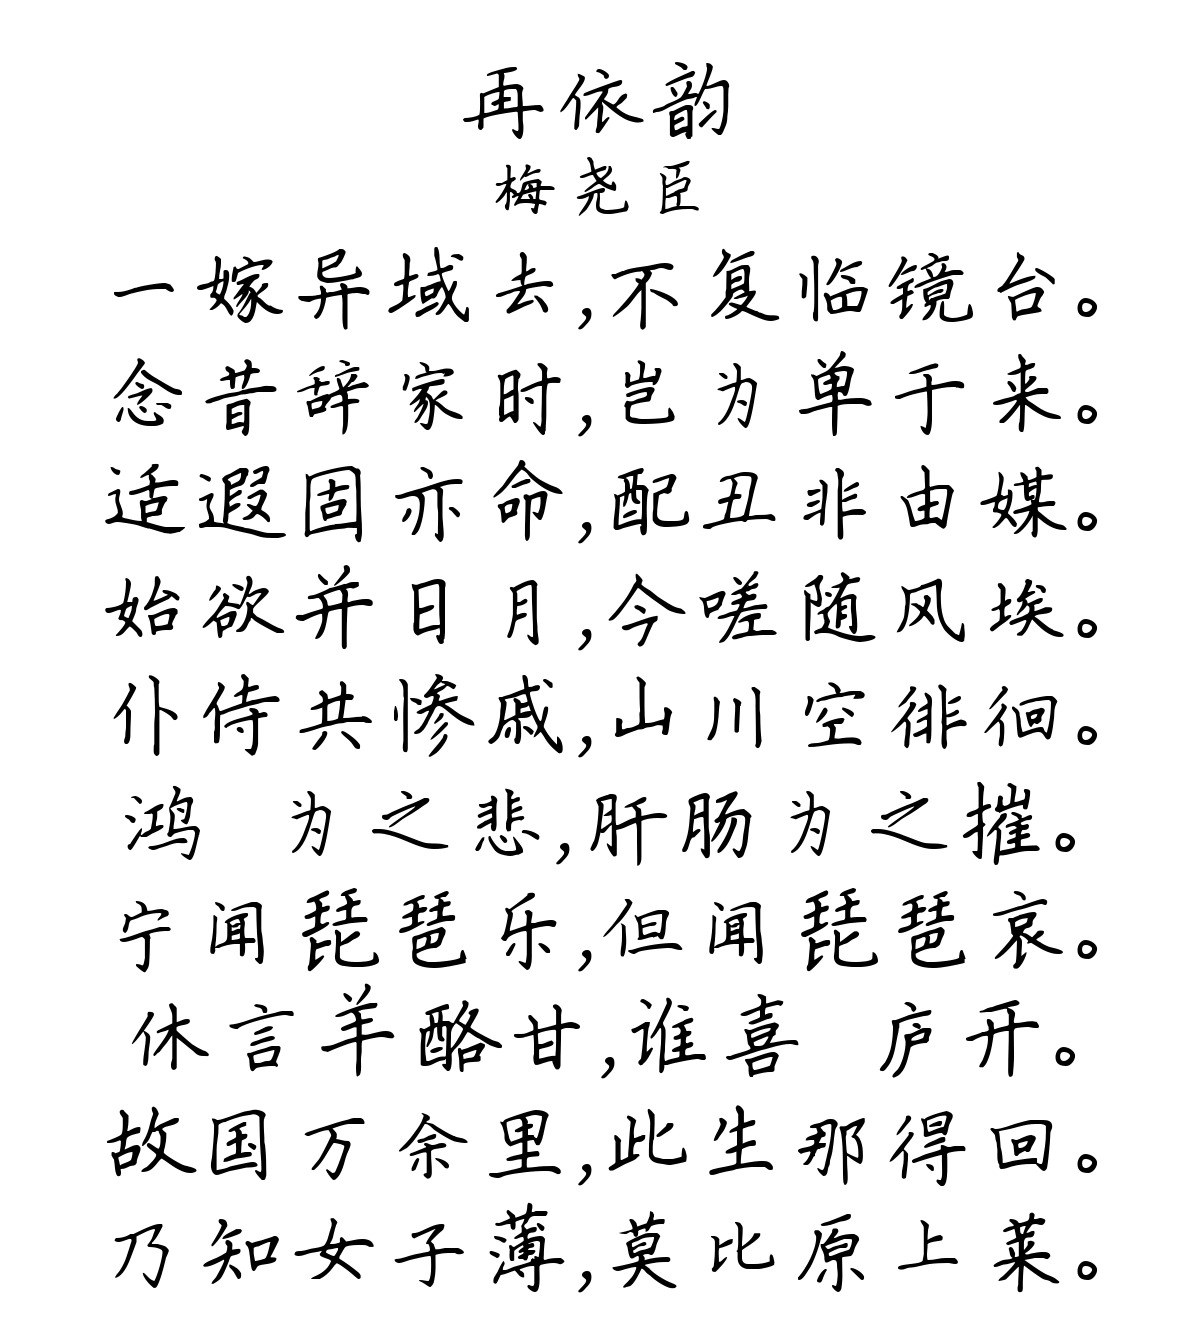 再依韵
梅尧臣
一嫁异域去,不复临镜台。
念昔辞家时,岂为单于来。
适遐固亦命,配丑非由媒。
始欲并日月,今嗟随风埃。
仆侍共惨戚,山川空徘徊。
鸿 为之悲,肝肠为之摧。
宁闻琵琶乐,但闻琵琶哀。
休言羊酪甘,谁喜 庐开。
故国万余里,此生那得回。
乃知女子薄,莫比原上莱。